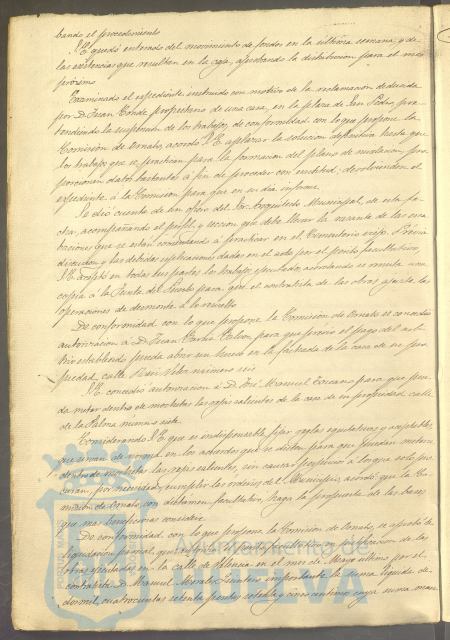 bando el procedimiento
S.E. quedó enterado del movimiento de fondos en la última semana y de
las existencias que resultan en la caja, aprobando la distribución para el mes
próximo
Examinado el espediente instruido con motivo de la reclamacion deducida
por D. Juan Conde propietario de una casa, en la plaza de San Pedro, pre-
tendiendo la suspension de los trabajos, de conformidad con lo que propone la
Comisión de Ornato, acordó S.E. aplazar la solucion definitiva hasta que
los trabajos que se practican para la formacion del plano de nivelacion, pro-
porcionen datos bastantes á fin de proceder con exactitud, devolviendo el
espediente á la Comision para que en su dia informe.
Se dió cuenta de un oficio del Sr. Arquitecto Municipal, de esta fe-
cha, acompañando el perfil y seccion que debe llevar la variante de las esca-
vaciones que se están comenzando á practicar en el Cementerio viejo. Previa
discusion y las debidas esplicaciones dadas en el acto por el perito facultativo,
S.E. aceptó en todas sus partes los trabajos ejecutados, acordando se remita una
copia á la Junta del Puerto para que el contratista de las obras ajuste las
operaciones de desmonte á lo resuelto
De conformidad con lo que propone la Comisión de Ornato se concedió
autorizacion á D. Juan para que previo el pago del arbi-
trio establecido pueda abrir un hueco en la fachada de la casa de su pro-
piedad calle número seis
S.E. concedió autorizacion á D. José Manuel Toscano para que pue-
da meter dentro de mochetas las rejas salientes de la casa de su propiedad, calle
de la Palma número siete.
Considerando S.E. que es indispensable fijar reglas equitativas y aceptables,
que sirvan de norma en los acuerdos que se dicten para que puedan meterse
dentro de mochetas las rejas salientes, sin causar perjuicio á los que solo pro-
curan, por necesidad, cumplir las órdenes del Municipio, acordó que la Co-
misión de Ornato, con dictámen facultativo, haga la propuesta de las bases
que mas beneficiosas considere
De conformidad con lo que propone la Comisión de Ornato, se aprobó la
liquidacion parcial, que el perito facultativo de las
obras ejecutadas en la calle de Valencia en el mes de Mayo último por el
contratista D. Manuel Morales Quintero importante la suma líquida de
dos mil cuatrocientas setenta pesetas setenta y cinco céntimos cuya suma man-
Ayuntamiento de
HUELVA